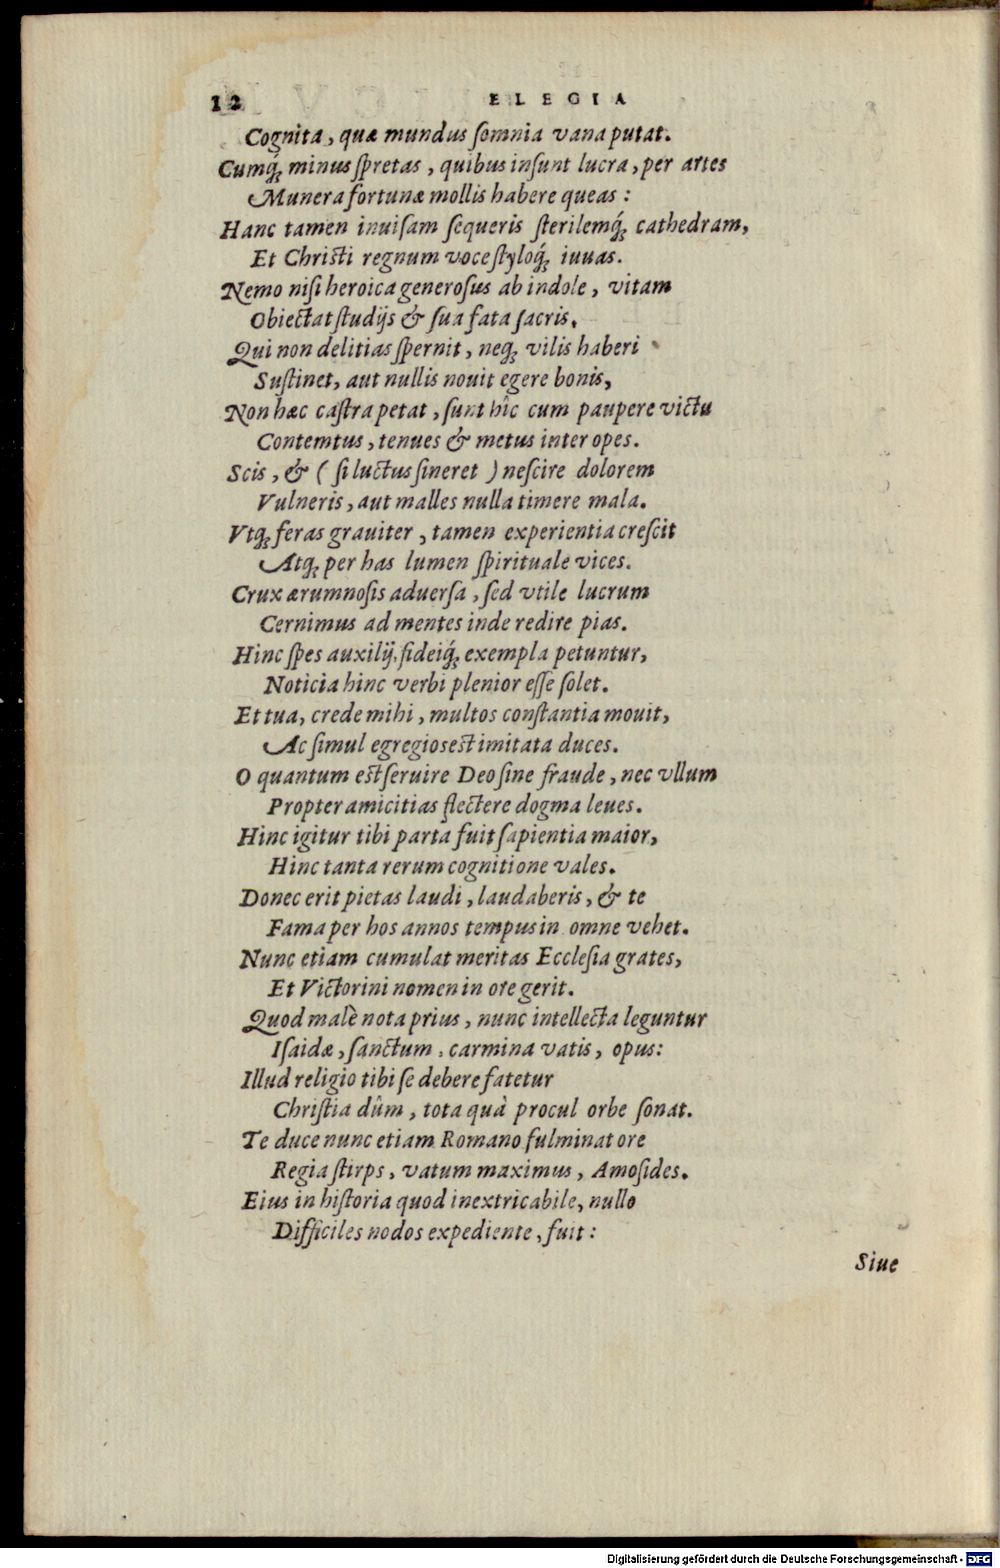 12 ELEGIA
Cognita, quæ mundus ſomnia vana putat.
Cumq́; minus ſpretas, quibus inſunt lucra, per artes
Munera fortunæ mollis habere queas:
Hanc tamen inuiſam ſequeris ſterilemq́; cathedram,
Et Chriſti regnum voce ſtyloq́; iuuas.
Nemo niſi heroica generoſus ab indole, vitam
Obiectat ſtudijs & ſua fata ſacris.
Qui non delitias ſpernit, neq; vilis haberi
Suſtinet, aut nullis nouit egere bonis,
Non hæc caſtra petat, ſunt hîc cum paupere victu
Contemtus, tenues & metus inter opes.
Scis, & (ſi luctus ſineret) neſcire dolorem
Vulneris, aut malles nulla timere mala.
Vtq; feras grauiter, tamen experientia creſcit
Atq; per has lumen ſpirituale vices.
Crux ærumnoſis aduerſa, ſed vtile lucrum
Cernimus ad mentes inde redire pias.
Hinc ſpes auxilij, fideiq́; exempla petuntur,
Noticia hinc verbi plenior eſſe ſolet.
Et tua, crede mihi, multos conſtantia mouit,
Ac ſimul egregios eſt imitata duces.
O quantum eſt ſeruire Deo ſine fraude, nec vllum
Propter amicitias flectere dogma leues.
Hinc igitur tibi parta fuit ſapientia maior,
Hinc tanta rerum cognitione vales.
Donec erit pietas laudi, laudaberis, & te
Fama per hos annos tempus in omne vehet.
Nunc etiam cumulat meritas Eccleſia grates,
Et Victorini nomen in ore gerit.
Quod malè nota prius, nunc intellecta leguntur
Iſaidæ, ſanctum, carmina vatis, opus:
Illud religio tibi ſe debere fatetur
Chriſtia dûm, tota quà procul orbe ſonat.
Te duce nunc etiam Romano fulminat ore
Regia ſtirps, vatum maximus, Amoſides.
Eius in hiſtoria quod inextricabile, nullo
Difficiles nodos expediente, fuit:
Siue
Digitalisierung gefördert durch die Deutsche Forschungsgemeinschaft - DFG